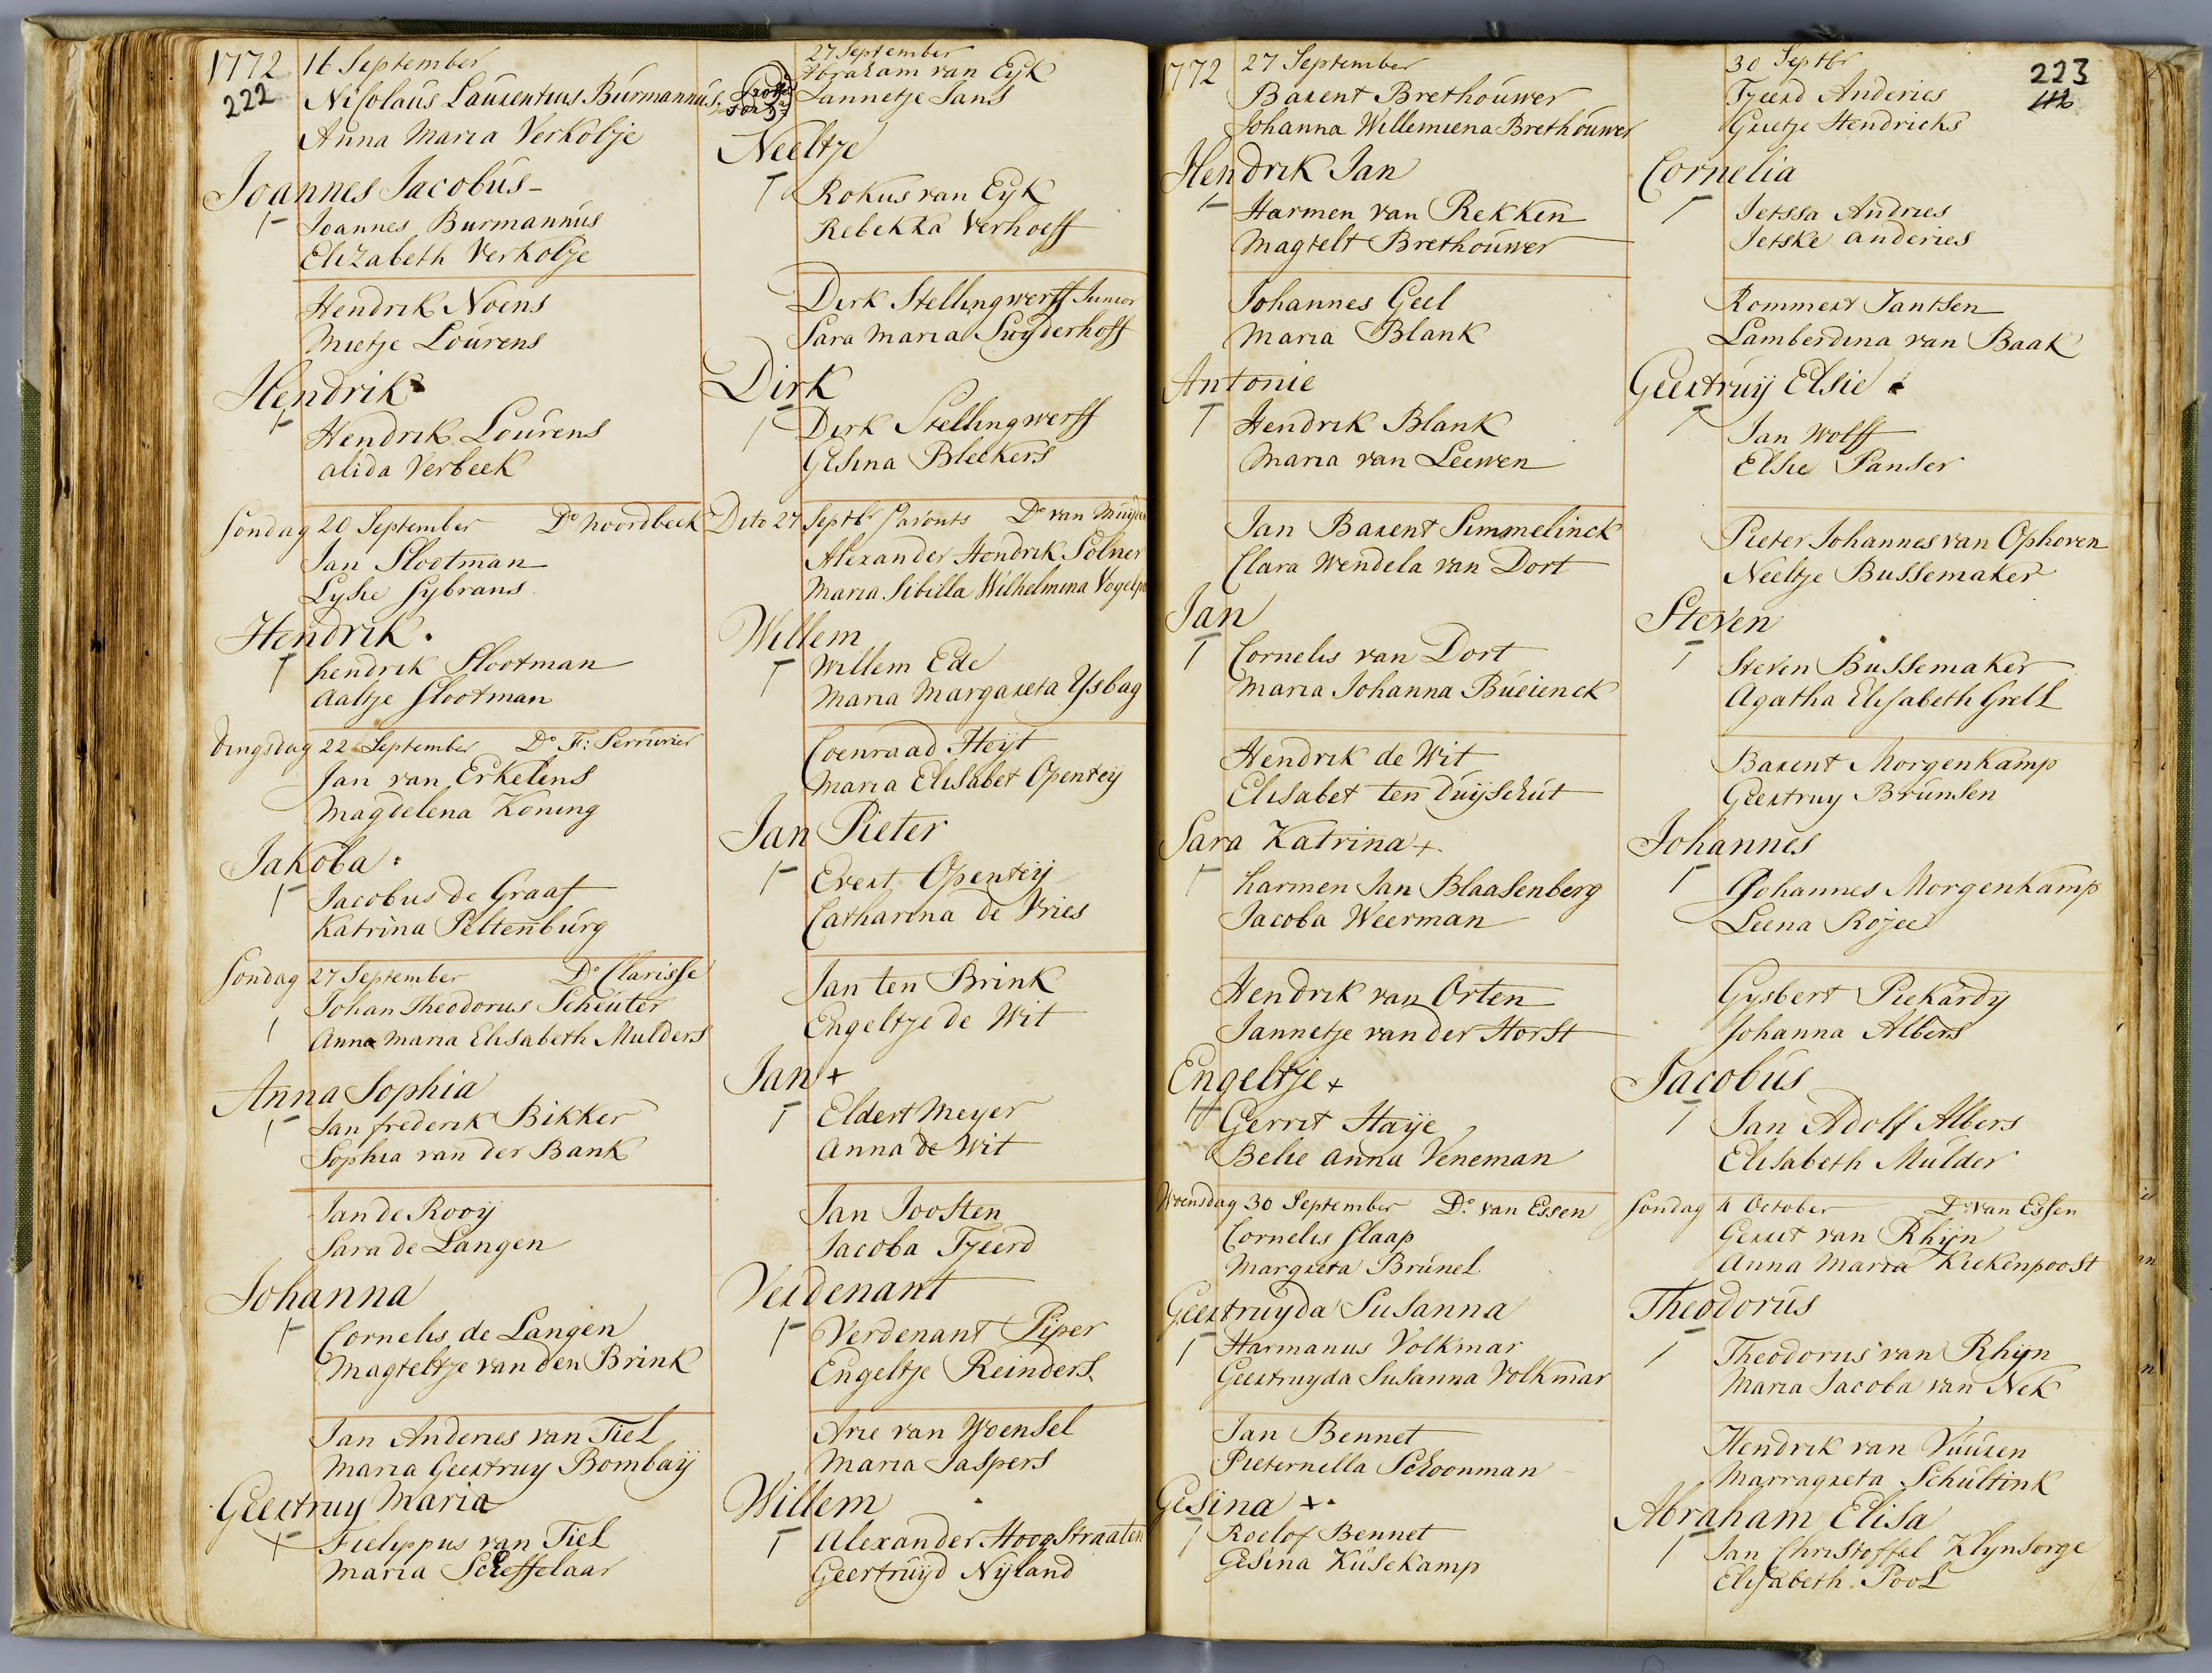 1772
222
16 September
Nicolaus Laurentius Burmannus
Anna Maria Verkolje
Joannes Jacobus
Joannes Burmannus
Elizabeth Verkolje
Hendrik Noens
Mietje Lourens
Hendrik
Hendrik Lourens
alida Verbeek
Sondag 20 September Do Noordbeek
Jan Slootman
Lysie Sybrans
Hendrik
hendrik Slootman
Aaltje Slootman
Dingsdag 22 September Do F: Serrurier
Jan van Erkelens
Magdelena Koning
Jakoba
Jacobus de Graaf
Katrina Peltenburg
Sondag 27 September Do Clarisse
Johan Theodorus Scheuter
Anna Maria Elisabeth Mulders
Anna Sophia
Jan frederik Bikker
Sophia van der Bank
Jan de Rooy
Sara de Langen
Johanna
Cornelis de Langen
Magteltje van den Brink
Jan Anderies van Tiel
Maria Geertruy Bombay
Geertruy Maria
Fielippus van Tiel
Maria Scheffelaar
27 September
Abraham van Eyk
Jannetje Jans
Neeltje
Rokus van Eyk
Rebekka Verhoeff
Dirk Stellingwerff Junior
Sara Maria Suyderhoff
Dirk
Dirk Stellingwerff
Gesina Bleekers
Dito 27 Septbr Do van Muyden
Alexander Hendrik Solner
Maria Sibilla Wilhelmina
Willem
Willem Ede
Maria Margareta Ysbag
Coenraad Heyt
Maria Elisabet Opentey
Jan Pieter
Evert Opentey
Catharina de Vries
Jan ten Brink
Engeltje de Wit
Jan +
Eldert Meyer
Anna de Wit
Jan Joosten
Jacoba Tjeerd
Verdenant
Verdenant Piper
Engeltje Reinders
Arie van Woensel
Maria Jaspers
Willem
Alexander Hoogstraaten
Geertruyd Nyland
1772
27 September
Barent Brethouwer
Johanna Willemiena Brethouwer
Hendrik Jan
Harmen van Rekken
Magtelt Brethouwer
Johannes Geel
Maria Blank
Antonie
Hendrik Blank
Maria van Leewen
Jan Barent Simmelinck
Clara Wendela van Dort
Jan
Cornelis van Dort
Maria Johanna Bueienck
Hendrik de Wit
Elisabet ten Duyschut
Sara Katrina +
harmen Jan Blaasenberg
Jacoba Weerman
Hendrik van Orten
Jannetje van der Horst
Engeltje +
Gerrit Haye
Belie Anna Veneman
Woensdag 30 September Do van Essen
Cornelis Slaap
Margreta Brunel
Geertruyda Susanna
Harmanus Volkmar
Geertruyda Susanna Volkmar
Jan Bennet
Pieternella Schoonman
Gesina +
Roelof Bennet
Gesina Kusekamp
223
30 Septbr
Tjeerd Anderies
Grietje Hendricks
Cornelia
Jetssa Andries
Jetske anderies
Rommert Jantsen
Lamberdina van Baak
Geertruy Elsie
Jan Wolff
Elsie Panser
Pieter Johannes van Ophoven
Neeltje Bussemaker
Steven
Steven Bussemaker
Agatha Elisabeth Grell
Barent Morgenkamp
Geertruy Brunsen
Johannes
Johannes Morgenkamp
Leena Rojee
Gysbert Piekardy
Johanna Albers
Jacobus
Jan Adolf Albers
Elisabeth Mulder
Sondag 4 October Do van Essen
Gerrit van Rhijn
Anna Maria Kiekenpoost
Theodorus
Theodorus van Rhijn
Maria Jacoba van Nek
Hendrik van Vuuren
Marragreta Schultink
Abraham Elisa
Jan Christoffel Klynsorge
Elisabeth Pool